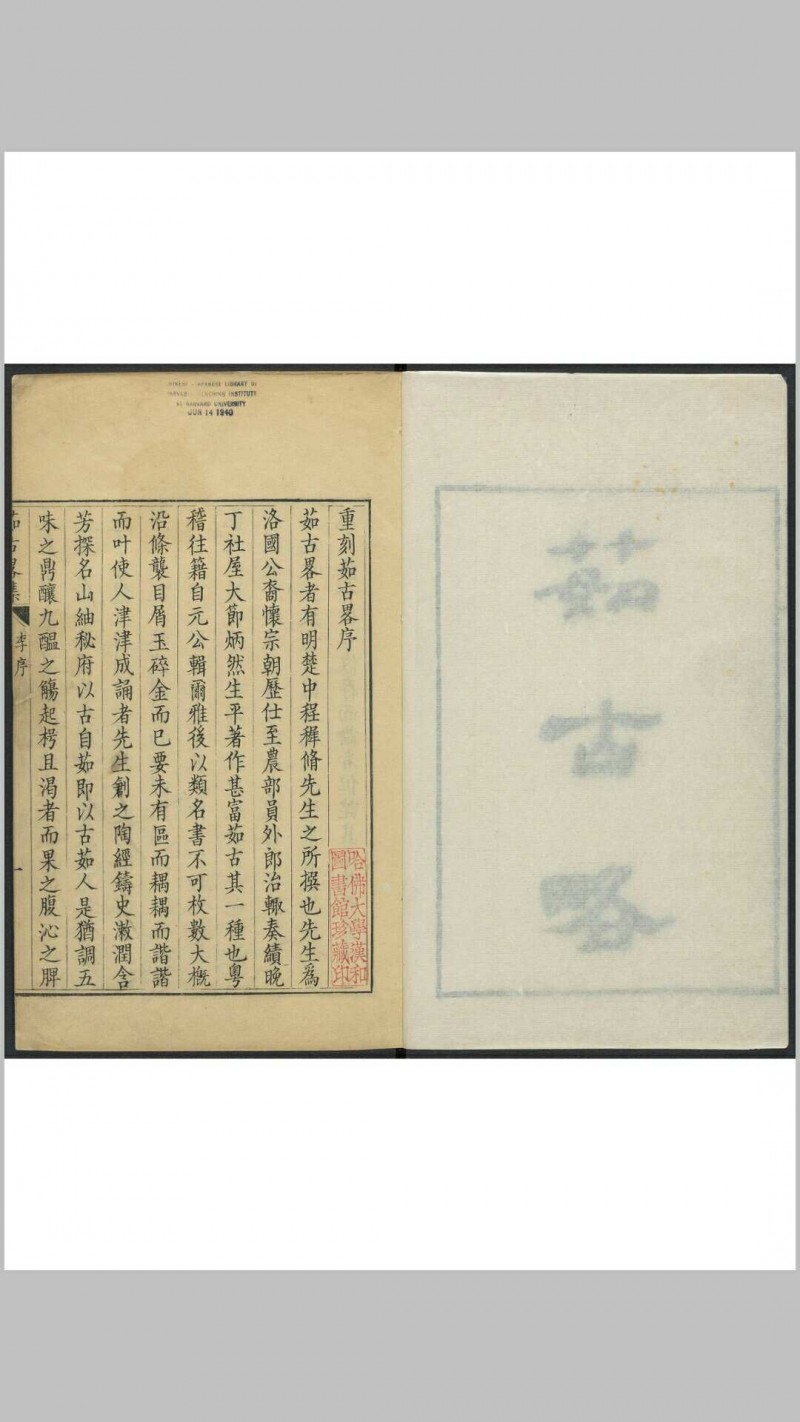 茹
古
略
JUN 14 1940
重刻茹古畧序
茹古畧者有明楚中程穉脩先生之所撰也先生爲
洛國公裔懷宗朝歷仕至農部員外郎治輙奏績晚
丁社屋大節炳然生平著作甚富茹古其一種也粵
稽往籍自元公輯爾雅後以類名書不可枚數大槪
沿條襲目屑玉碎金而已要未有區而耦耦而諧諧
而叶使人津津成誦者先生創之陶經鑄史漱潤含
芳探名山紬秘府以古自茹即以古茹人是猶調五
味之鼎釀九醞之觴起枵且渴者而果之腹沁之脾
茹古畧集
李序
一
哈佛大學漢和
圖書館珍藏印